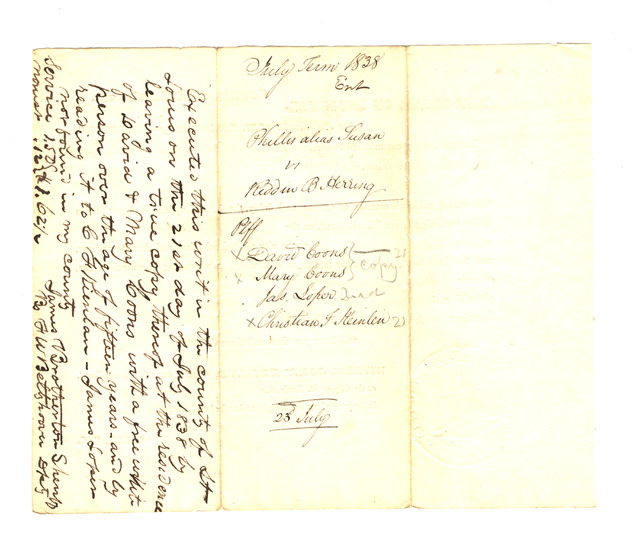 July Term 1838
Ent
Phillis alias Susan
vs
Redden B Herring
Plff
x David Coons } 21
x Mary Coons } copy
Jas. Loper
x Christian F Heinlen 21
23 July
Executed this writ in the county of St
Louis on the 21st day of July 1838 by
leaving a true copy thereof at the residence
of David & Mary Coons with a free white
person over the age of fifteen years and by
reading it to C F Henlan - James Loper
not found in my county
Service 1.50
James Brotherton Sheriff
By